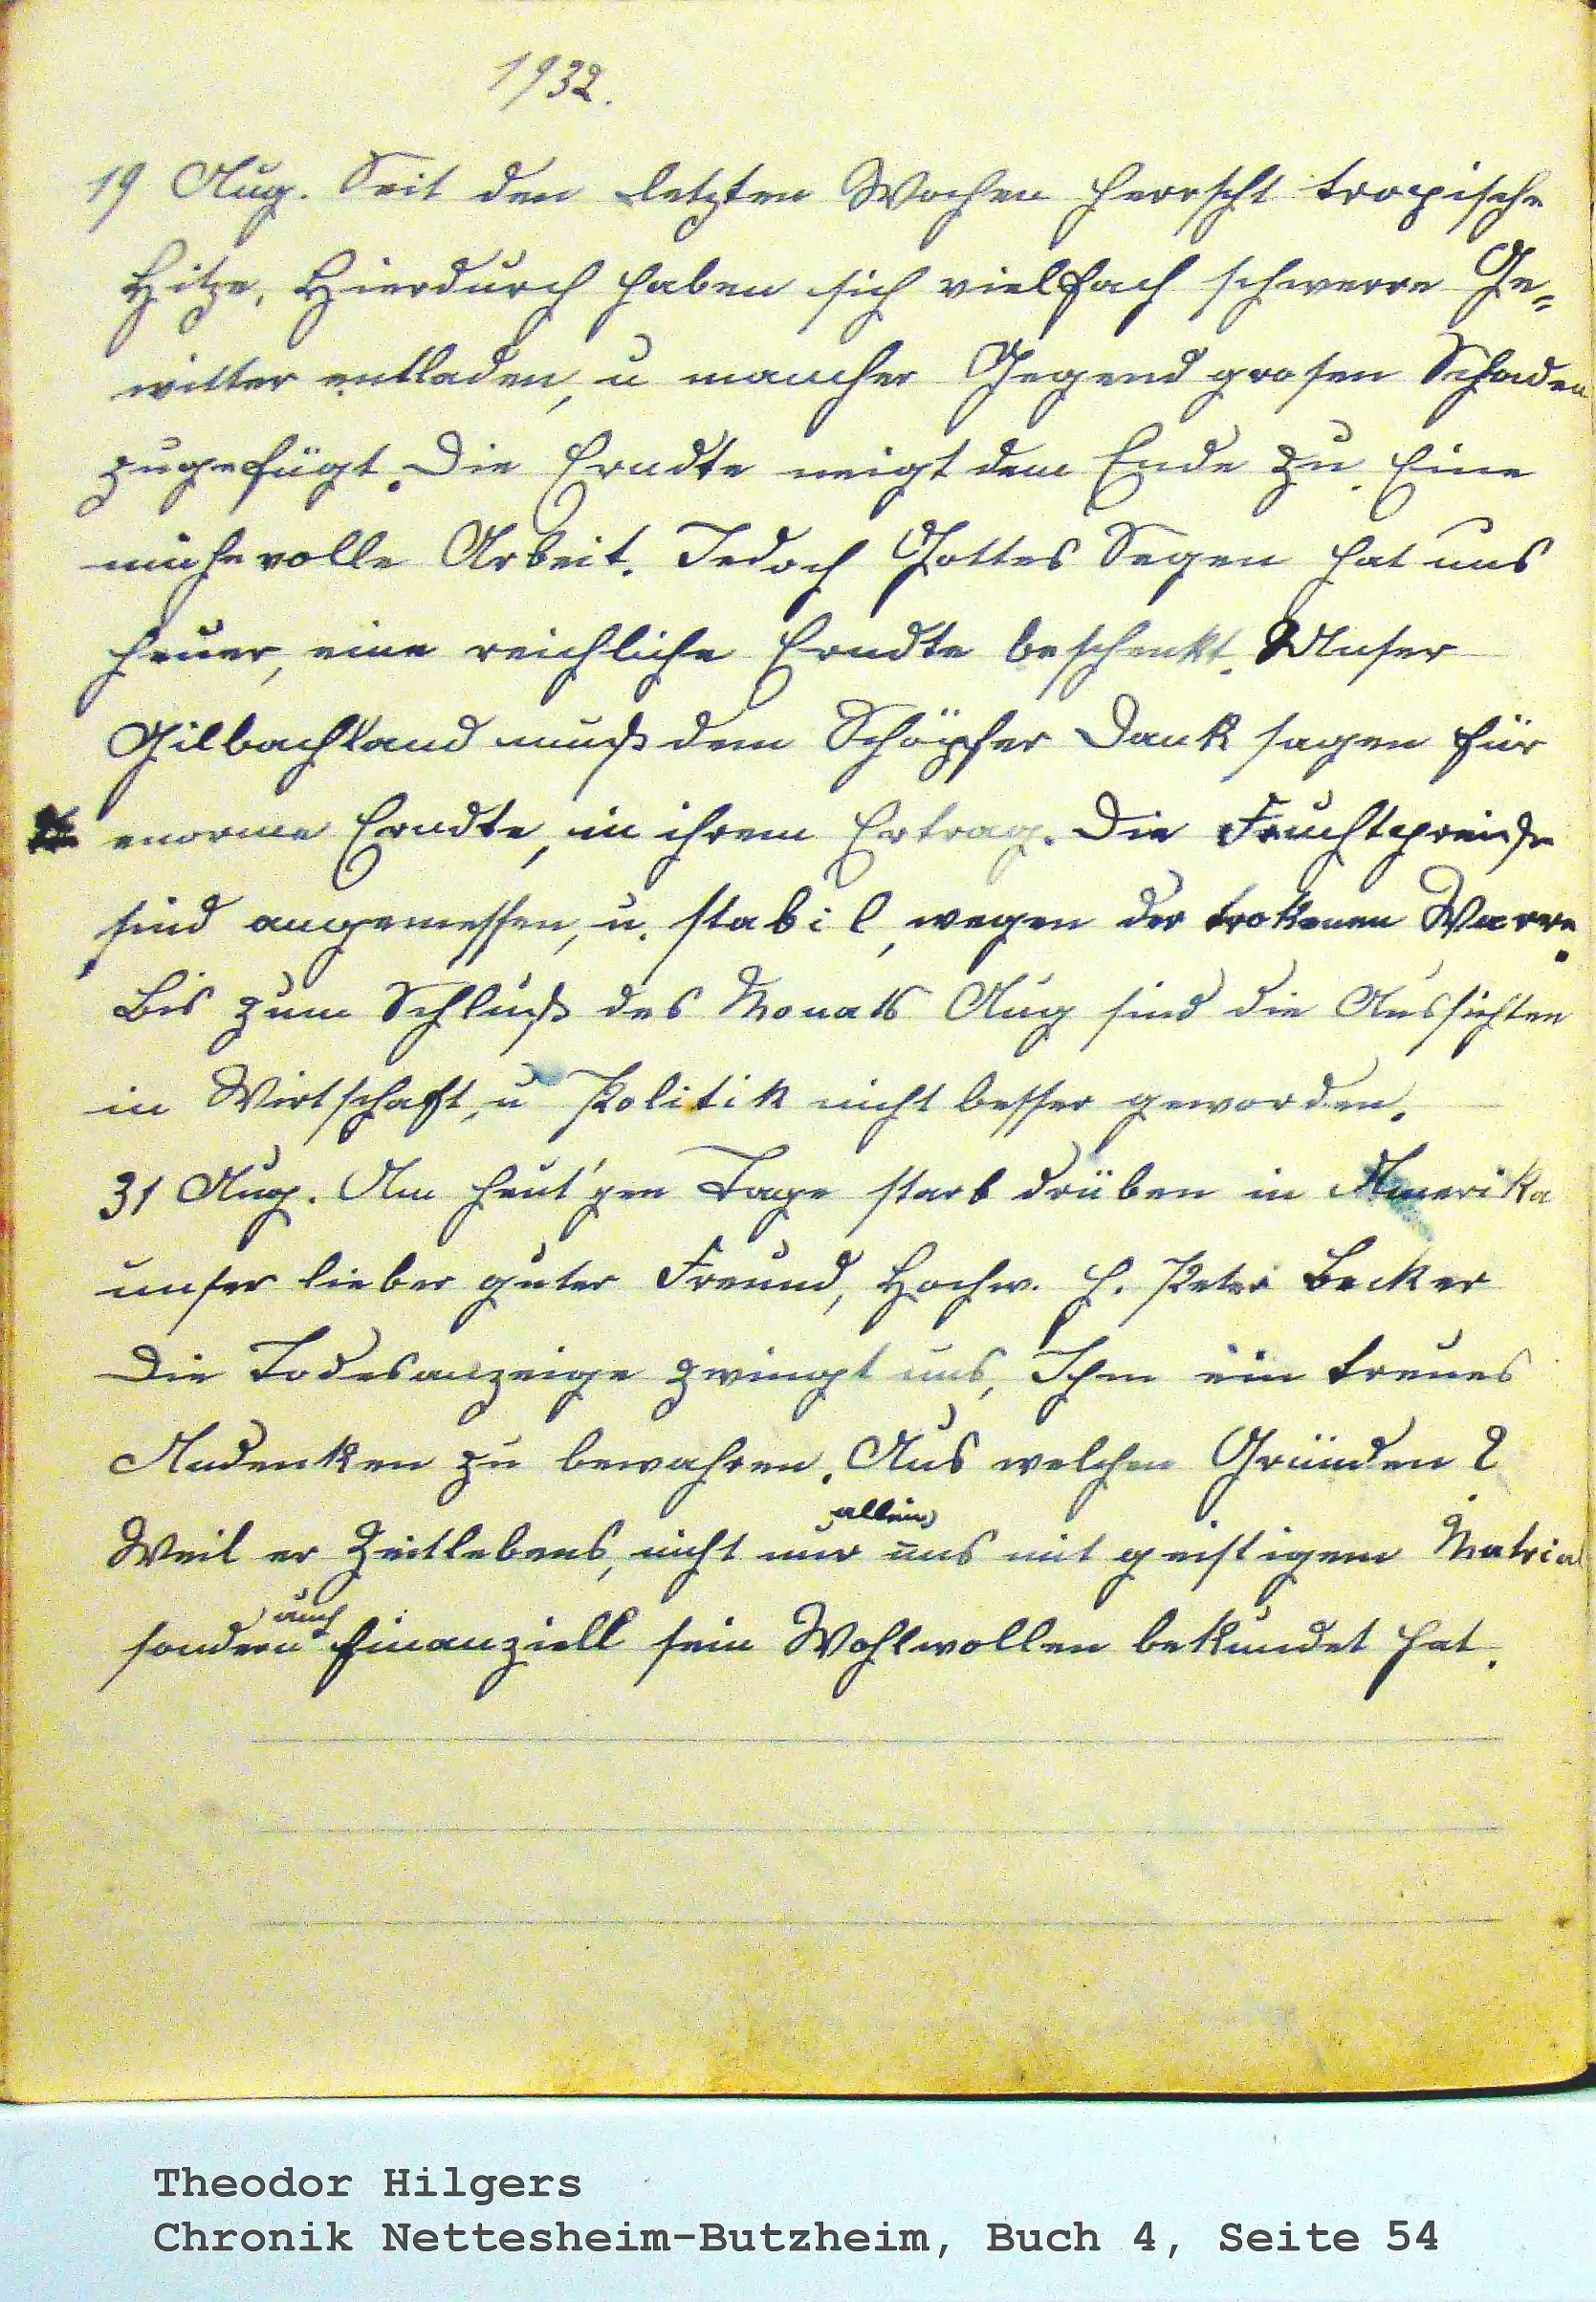 1932.
19 Aug. Seit den letzten Wochen herrscht tropische
Hitze, Hierdurch haben sich vielfach schwere Ge=
witter entladen, u mancher Gegend grosen Schaden
zugefügt. Die Erndte neigt dem Ende zu. Eine
mühevolle Arbeit. Jedoch Gottes Segen hat uns
heuer, eine reichliche Erndte beschenkt. Unser
Gilbachland muß dem Schöpfer Dank sagen für
enorme Erndte, in ihrem Ertrag. Die Fruchtpreiße
sind angemessen, u. stabil, wegen der trokenen Warre.
Bis zum Schluß des Monats Aug sind die Aussichten
in Wirtschaft, u Politik nicht besser geworden.
31 Aug. Am heut'gen Tage starb drüben in Amerika
unser lieber guter Freund, Hochw. H. Peter Becker
Die Todesanzeige zwingt uns, Ihm ein treues
Andenken zu bewahren. Aus welchen Gründen?
Weil er Zeitlebens, nicht nur allein uns mit geistigem Matrial
sondern auch finanziell sein Wohlwollen bekundet hat.
Theodor Hilgers
Chronik Nettesheim-Butzheim, Buch 4, Seite 54